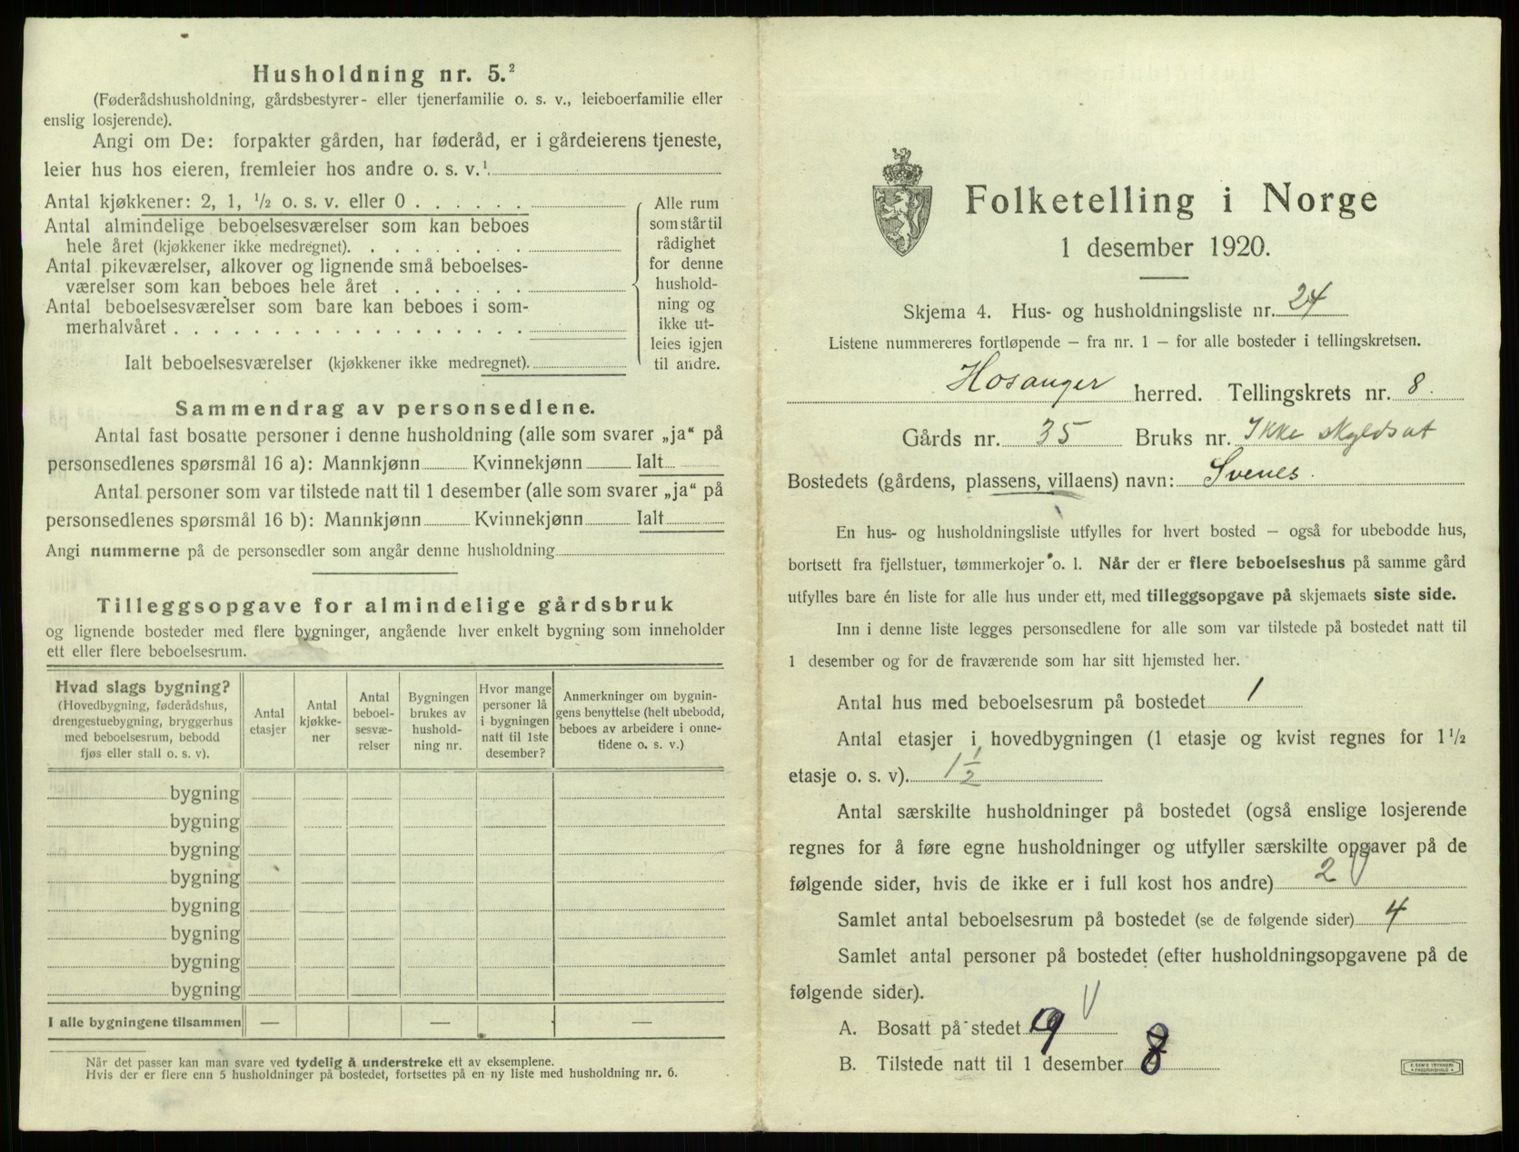 Husholdning nr. 5.²
(Føderådshusholdning, gårdsbestyrer- eller tjenerfamilie o. s. v., leieboerfamilie eller
enslig losjerende).
Angi om De: forpakter gården, har føderåd, er i gårdeierens tjeneste,
leier hus hos eieren, fremleier hos andre o. s. v.¹
Antal kjøkkener: 2, 1, ½ o. s. v. eller 0
Antal almindelige beboelsesværelser som kan beboes
hele året (kjøkkener ikke medregnet).
Antal pikeværelser, alkover og lignende små beboelses-
værelser som kan beboes hele året
Antal beboelsesværelser som bare kan beboes i som-
merhalvåret
Ialt beboelsesværelser (kjøkkener ikke medregnet).
Alle rum
som står til
rådighet
for denne
hushold-
ning og
ikke ut-
leies igjen
til andre.
Sammendrag av personsedlene.
Antal fast bosatte personer i denne husholdning (alle som svarer „ja“ på
personsedlenes spørsmål 16 a): Mannkjønn Kvinnekjønn Ialt
Antal personer som var tilstede natt til 1 desember (alle som svarer „ja“ på
personsedlenes spørsmål 16 b): Mannkjønn Kvinnekjønn Ialt
Angi nummerne på de personsedler som angår denne husholdning
Tilleggsopgave for almindelige gårdsbruk
og lignende bosteder med flere bygninger, angående hver enkelt bygning som inneholder
ett eller flere beboelsesrum.
Hvad slags bygning?
(Hovedbygning, føderådshus,
drengestuebygning, bryggerhus
med beboelsesrum, bebodd
fjøs eller stall o. s. v).
Antal
etasjer
Antal
kjøkke-
ner
Antal
beboel-
sesvæ-
relser
Bygningen
brukes av
hushold-
ning nr.
Hvor mange
personer lå
i bygningen
natt til 1ste
desember?
Anmerkninger om bygnin-
gens benyttelse (helt ubebodd,
beboes av arbeidere i onne-
tidene o. s. v.)
bygning
bygning
bygning
bygning
bygning
bygning
bygning
bygning
I alle bygningene tilsammen — — —
Når det passer kan man svare ved tydelig å understreke ett av eksemplene.
Hvis der er flere enn 5 husholdninger på bostedet, fortsettes på en ny liste med husholdning nr. 6.
Folketelling i Norge
1 desember 1920.
Skjema 4. Hus- og husholdningsliste nr. 24
Listene nummereres fortløpende — fra nr. 1 — for alle bosteder i tellingskretsen.
Hosanger herred. Tellingskrets nr. 8.
Gårds nr. 35 Bruks nr. Ikke skyldsat
Bostedets (gårdens, plassens, villaens) navn: Svenes.
En hus- og husholdningsliste utfylles for hvert bosted — også for ubebodde hus,
bortsett fra fjellstuer, tømmerkojer o. l. Når der er flere beboelseshus på samme gård
utfylles bare én liste for alle hus under ett, med tilleggsopgave på skjemaets siste side.
Inn i denne liste legges personsedlene for alle som var tilstede på bostedet natt til
1 desember og for de fraværende som har sitt hjemsted her.
Antal hus med beboelsesrum på bostedet 1
Antal etasjer i hovedbygningen (1 etasje og kvist regnes for 1½
etasje o. s. v). 1½
Antal særskilte husholdninger på bostedet (også enslige losjerende
regnes for å føre egne husholdninger og utfyller særskilte opgaver på de
følgende sider, hvis de ikke er i full kost hos andre) 2
Samlet antal beboelsesrum på bostedet (se de følgende sider) 4
Samlet antal personer på bostedet (efter husholdningsopgavene på de
følgende sider).
A. Bosatt på stedet 9
B. Tilstede natt til 1 desember 8